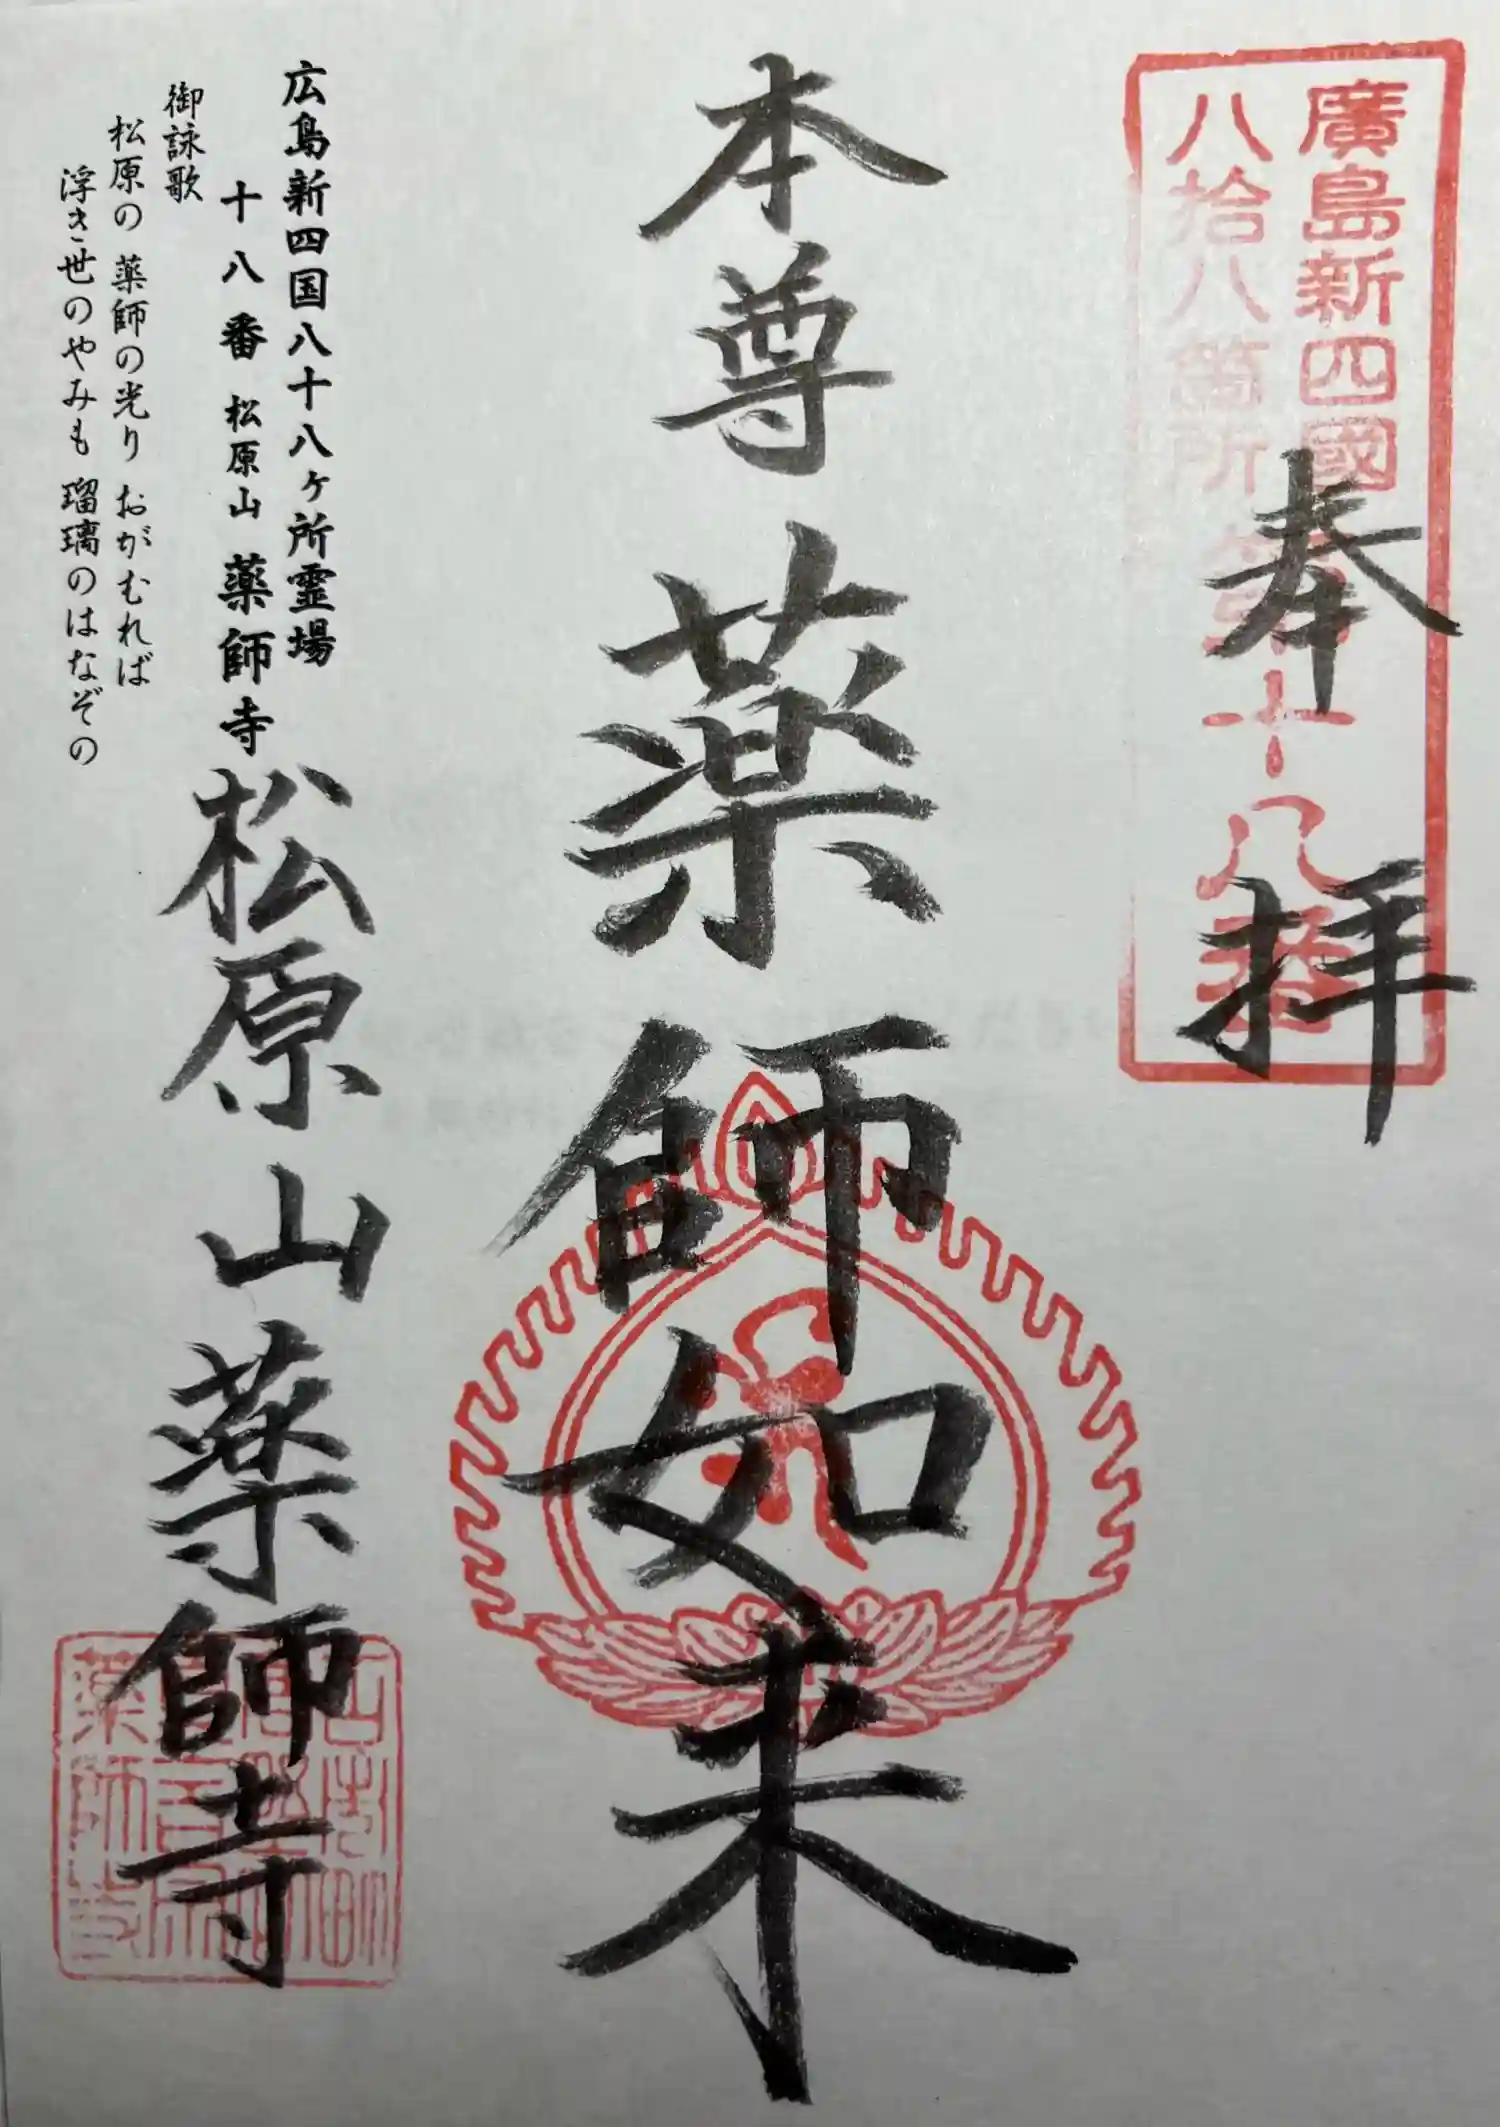 廣島新四國
八拾八箇所
第十八番
奉拝
本尊 薬師如来
広島新四国八十八ヶ所霊場
十八番 松原山 薬師寺
御詠歌
松原の 薬師の光り おがむれば
浮き世のやみも 瑠璃のはなぞの
松原山薬師寺